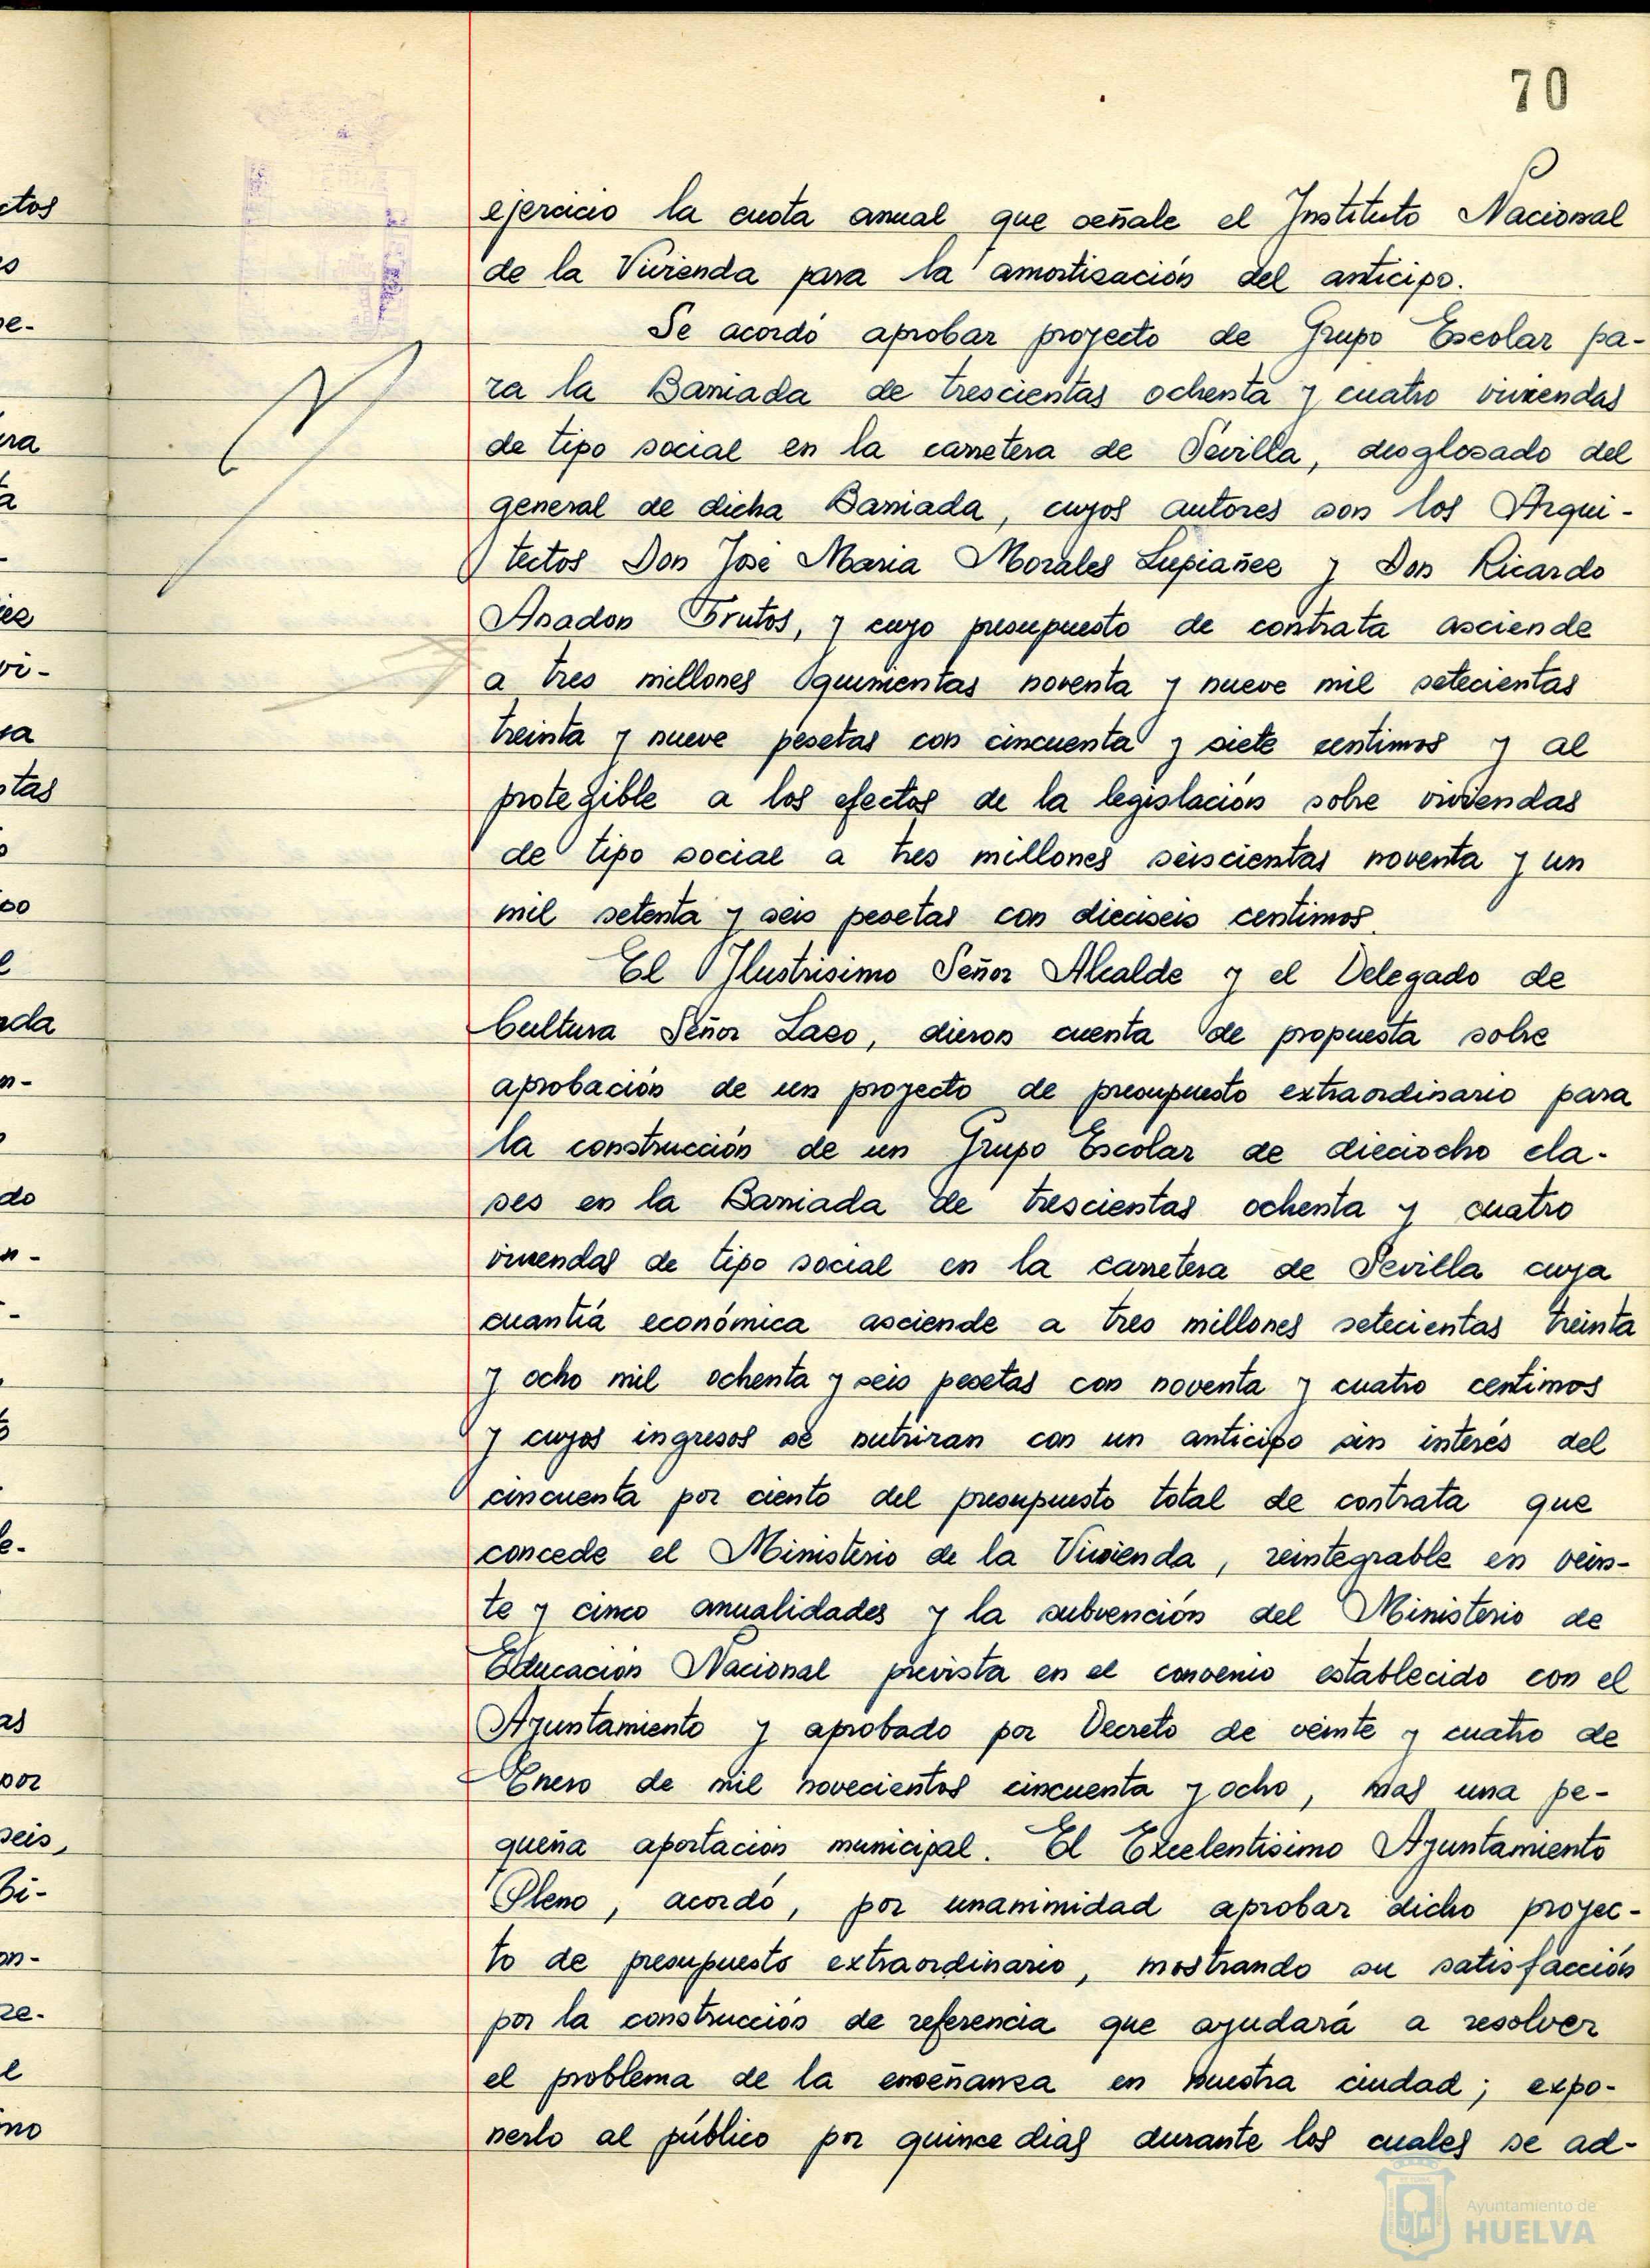 70
ejercicio la cuota anual que señale el Instituto Nacional
de la Vivienda para la amortización del anticipo.
Se acordó aprobar proyecto de Grupo Escolar pa-
ra la Barriada de trescientas ochenta y cuatro viviendas
de tipo social en la carretera de Sevilla, desglosado del
general de dicha Barriada, cuyos autores son los Arqui-
tectos Don José Maria Morales Lupiañez y Don Ricardo
Anadon Frutos, y cuyo presupuesto de contrata asciende
a tres millones quinientas noventa y nueve mil setecientas
treinta y nueve pesetas con cincuenta y siete centimos y al
protegible a los efectos de la legislación sobre viviendas
de tipo social a tres millones seiscientas noventa y un
mil setenta y seis pesetas con dieciseis centimos.
El Ilustrisimo Señor Alcalde y el Delegado de
Cultura Señor Lazo, dieron cuenta de propuesta sobre
aprobación de un proyecto de presupuesto extraordinario para
la construcción de un Grupo Escolar de dieciocho cla-
ses en la Barriada de trescientas ochenta y cuatro
viviendas de tipo social en la carretera de Sevilla cuya
cuantía económica asciende a tres millones setecientas treinta
y ocho mil ochenta y seis pesetas con noventa y cuatro centimos
y cuyos ingresos se nutriran con un anticipo sin interés del
cincuenta por ciento del presupuesto total de contrata que
concede el Ministerio de la Vivienda, reintegrable en vein-
te y cinco anualidades y la subvención del Ministerio de
Educación Nacional prevista en el convenio establecido con el
Ayuntamiento y aprobado por Decreto de veinte y cuatro de
Enero de mil novecientos cincuenta y ocho, mas una pe-
queña aportación municipal. El Excelentisimo Ayuntamiento
Pleno, acordó, por unanimidad aprobar dicho proyec-
to de presupuesto extraordinario, mostrando su satisfacción
por la construcción de referencia que ayudará a resolver
el problema de la enseñanza en nuestra ciudad; expo-
nerlo al público por quince dias durante los cuales se ad-
Ayuntamiento de
HUELVA